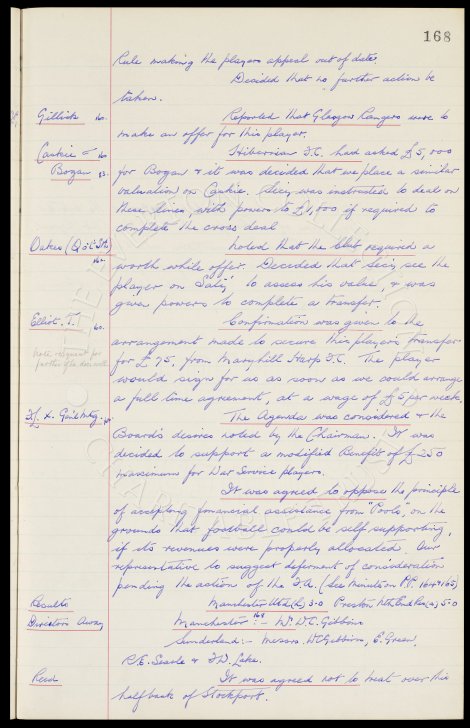 168
Rule making the players appeal out of date.
Decided that no further action be
taken.
Gillick 160. Reported that Glasgow Rangers were to
make an offer for this player.
Caskie & 160 Hibernian F.C. had asked £5,000
Bogan 163. for Bogan & it was decided that we place a similar
valuation on Caskie. Secy. was instructed to deal on
these lines, with powers to £1,000 if required to
complete the cross deal
Oakes (Q of Sth) Noted that the Club required a
worth while offer. Decided that Secy. see the
player on Satdy to assess his value, & was
given powers to complete a transfer.
Elliot. T. 160. Confirmation was given to the
arrangement made to secure this player's transfer
for £75, from Maryhill Harp F.C. The player
would sign for us as soon as we could arrange
a full time agreement, at a wage of £5 per week.
The Agenda was considered & the
Board's desires noted by the Chairman. It was
decided to support a modified Benefit of £250
maximum for War Service players.
It was agreed to oppose the principle
of accepting financial assistance from "Pools", on the
grounds that football could be self supporting,
if its revenues were properly allocated. Our
representative to suggest deferment of consideration
pending the action of the F.A. (See minutes on P.P. 164 & 165)
Results Manchester Utd (h) 3-0 Preston Nth End Res (a) 5-0
Directors Away Manchester :- Mr. W.C. Gibbins
Sunderland :- Messrs. W.C. Gibbins, E. Green,
R.E. Searle & F.W. Lake.
Reid It was agreed not to treat over this
half back of Stockport.